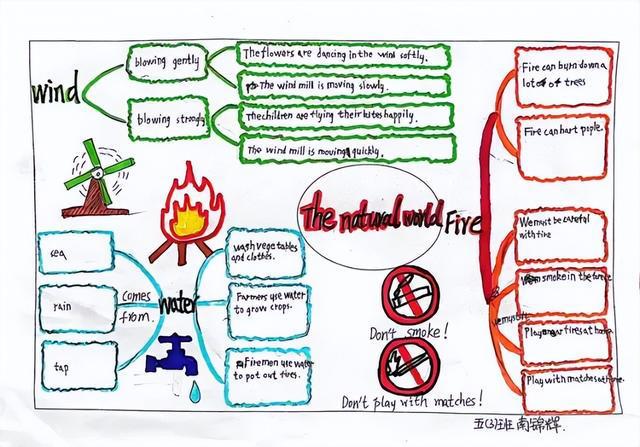 wind
blowing gently
The flowers are dancing in the wind softly.
The wind mill is moving slowly.
blowing strongly
The children are flying their kites happily.
The wind mill is moving quickly.
The natural world
Fire
Fire can burn down a
lot of trees
Fire can hart pople.
We must be careful
with fire
smoke in the
Play near fires at
Play with matches at
water
comes
from.
sea
rain
tap
wash vegetables
and clothes.
Farmers use water
to grow crops.
Firemen use water
to pot out fires.
Don't smoke!
Don't play with matches!
五(3)班 南锦辉.